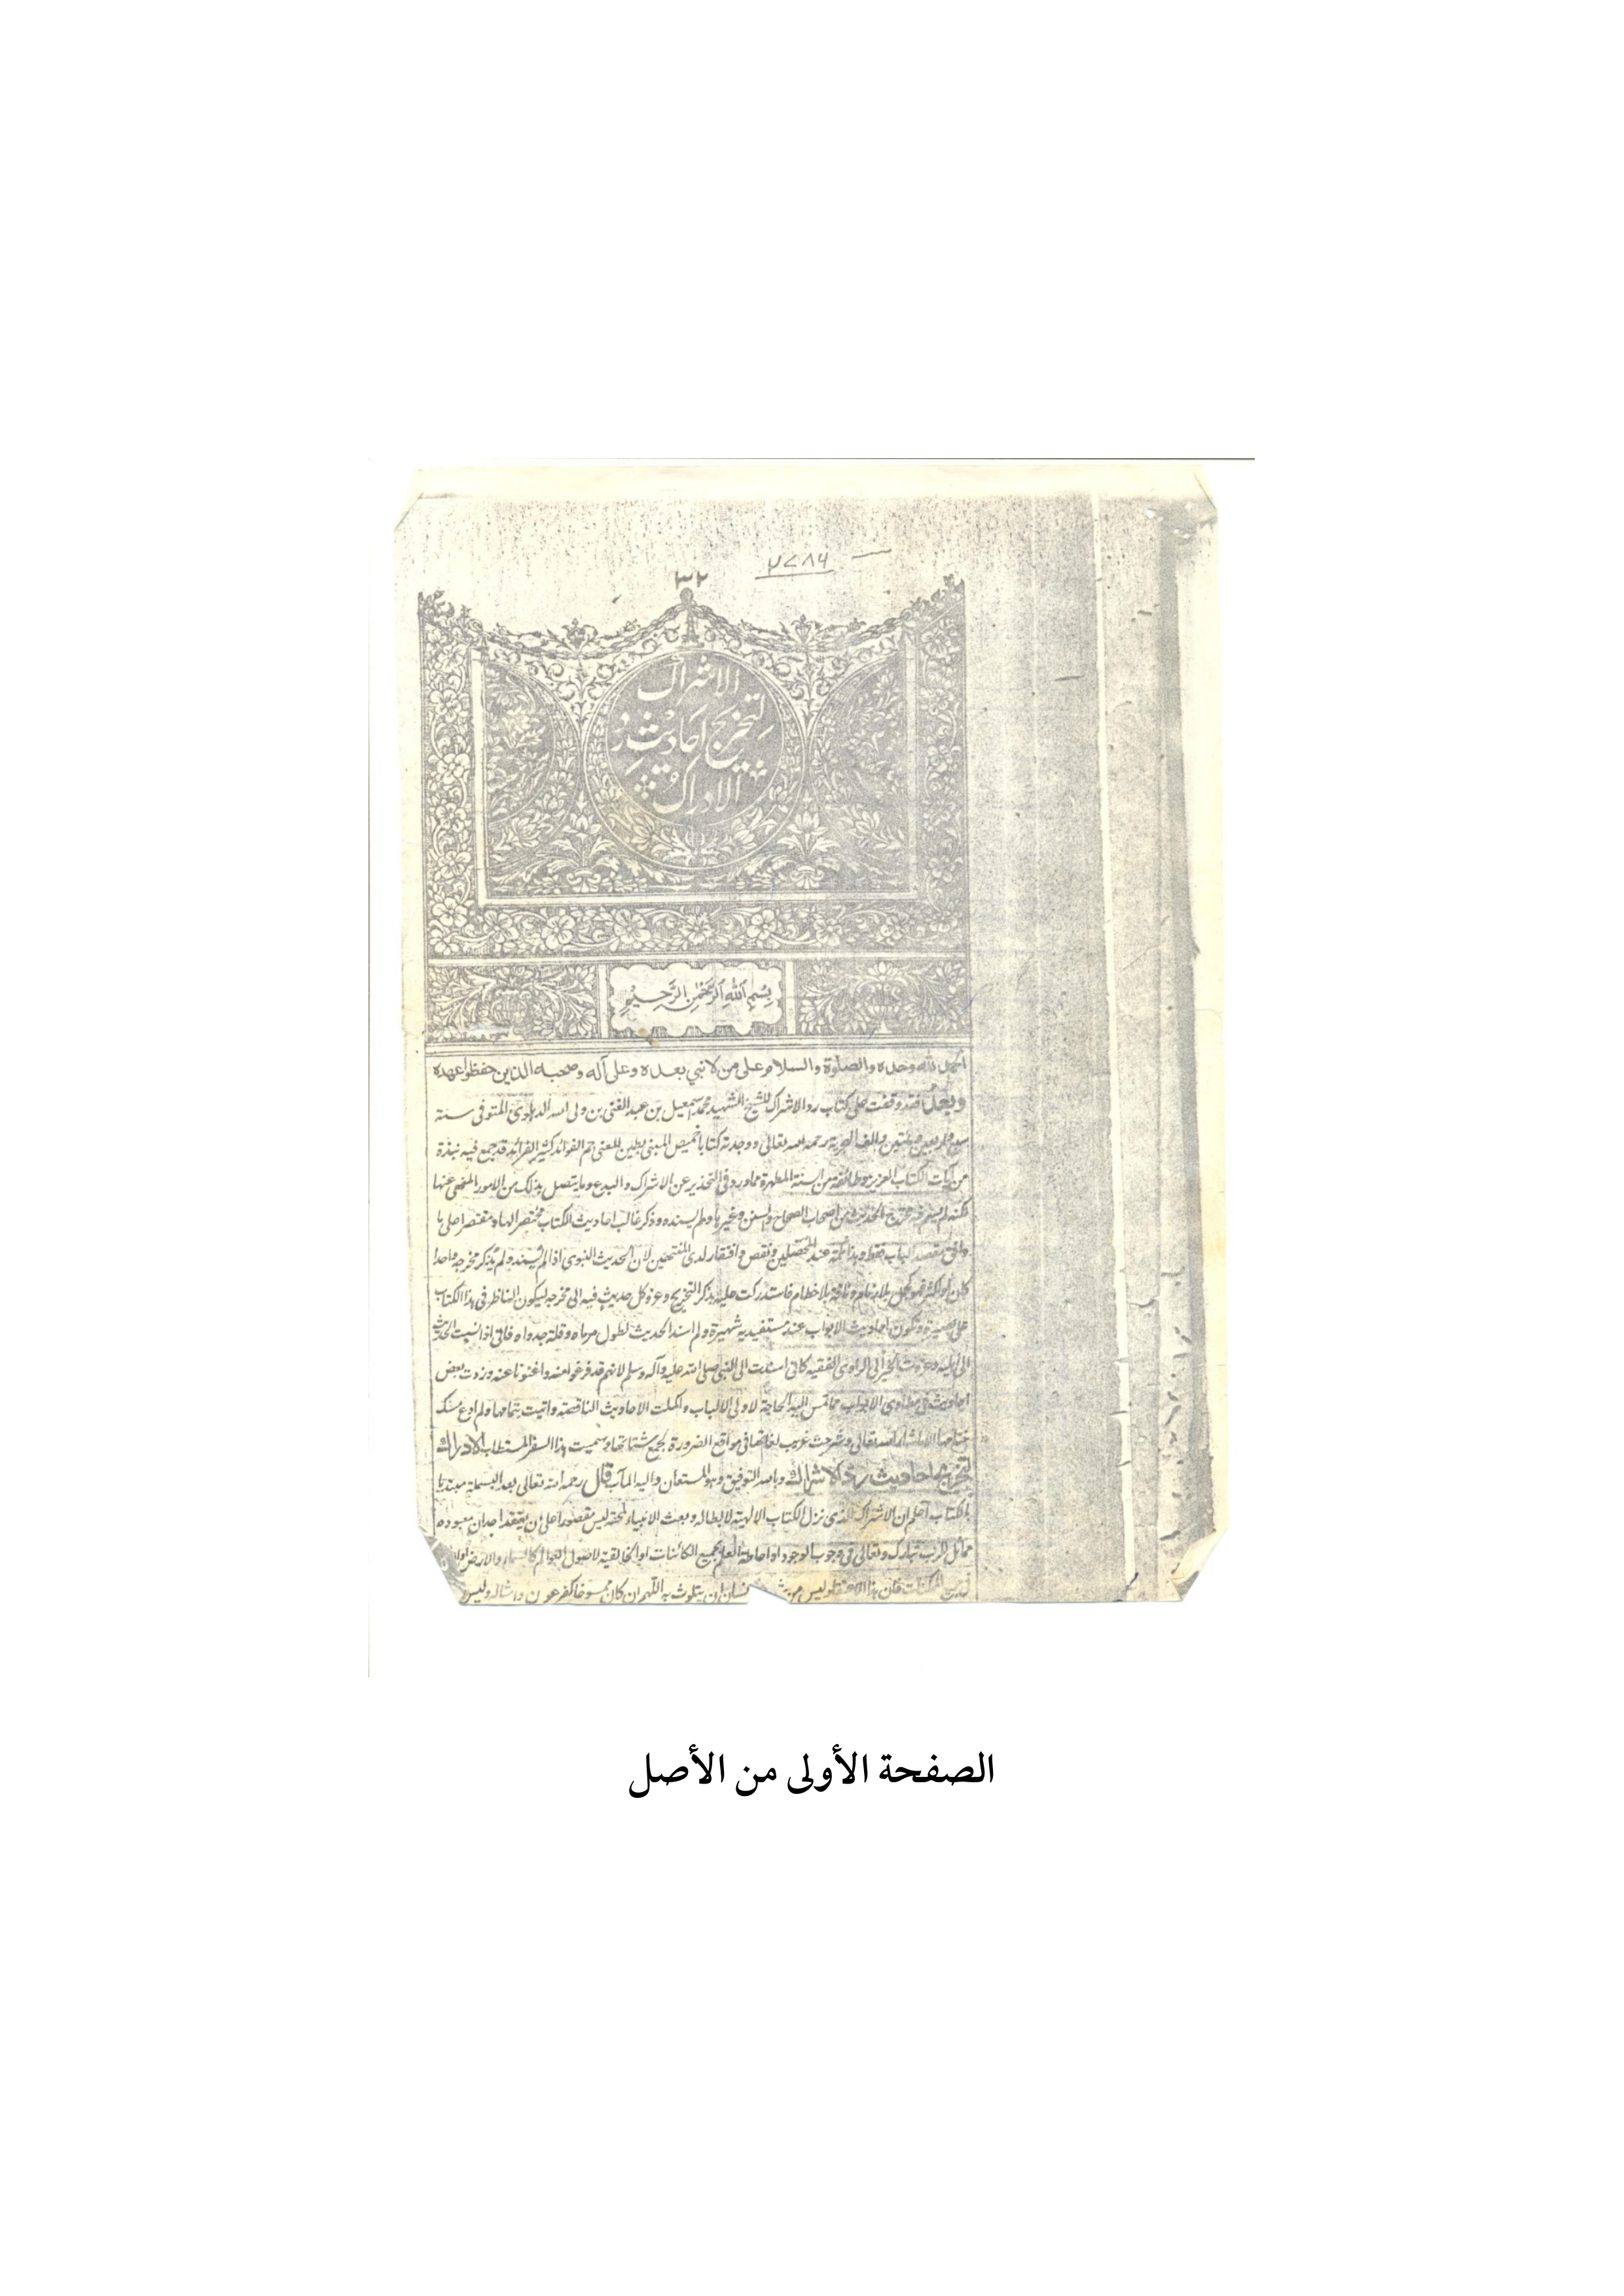 ٣٢
الاشراك
لتخريج احاديث رد
الادراك
بسم الله الرحمن الرحيم
الحمد لله وحده والصلوة والسلام على من لا نبي بعده وعلى آله وصحبه الذين حفظوا عهده
وبعد فقد وقفت على كتاب رد الاشراك للشيخ الشهيد محمد اسمعيل بن عبد الغنى بن ولى الله الدهلوى المتوفى سنة
ست واربعين ومئتين والف الهجرية رحمه الله تعالى ووجدته كتابا خميص المبنى بطين المعنى جم الفوائد كثير الفرائد قد جمع فيه نبذة
من آيات الكتاب العزيز وطائفة من السنة المطهرة مما ورد فى التحذير عن الاشراك والبدع وما يتصل بذلك من الامور المنهى عنها
لكنه لم يعز فيه مخرج الحديث من اصحاب الصحاح والسنن وغيرها ولم يسنده وذكر غالب احاديث الكتاب مختصرا لها ومقتصرا على ما
وافق مقصد الباب فقط وهذا عند المحصلين ونقص وافتقار لدى المنتحين لان الحديث النبوى اذا لم يسند ولم يذكر مخرجه واحدا
كان او اكثر فهو كجمل بلا زمام وناقة بلا خطام فاستدركت عليه بذكر التخريج وعزو كل حديث فيه الى مخرجه ليكون الناظر فى هذا الكتاب
على بصيرة وتكون احاديث الابواب عند مستفيديه شهيرة ولم اسند الحديث لطول مرماه وقلة جدواه فانى اذا نسبت الحديث
الى اهليه وعزوت الخبر الى الراوى الفقيه كانى اسندت الى النبى صلى الله عليه وآله وسلم لانهم قد فرغوا منه واغنونا عنه وزدت بعض
احاديث فى مطاوى الابواب مما تمس اليه الحاجة لاولى الالباب واكملت الاحاديث الناقصة واتيت بتمامها ولم ادع مسك
ختامها الا ما شاء الله تعالى وشرحت غريب لغاتها فى مواقع الضرورة لجمع شتاتها وسميت هذا السفر المستطاب الادراك
لتخريج احاديث رد الاشراك وبالله التوفيق وهو المستعان واليه المآب قال رحمه الله تعالى بعد البسملة مبتديا
بالكتاب اعلم ان الاشراك الذى نزل الكتاب الالهية لابطاله وبعث الانبياء لمحقه ليس مقصورا على ان يعتقد احد ان معبوده
مماثل للرب تبارك وتعالى فى وجوب الوجود او احاطة العلم بجميع الكائنات او الخالقية لاصول العوالم كالسماء والارض او
فى جميع الممكنات فان هذا الاعتقاد ليس من الانسان ان يتلوث به اللهم ان كان ممسوخا كفرعون وامثاله وليس
الصفحة الأولى من الأصل